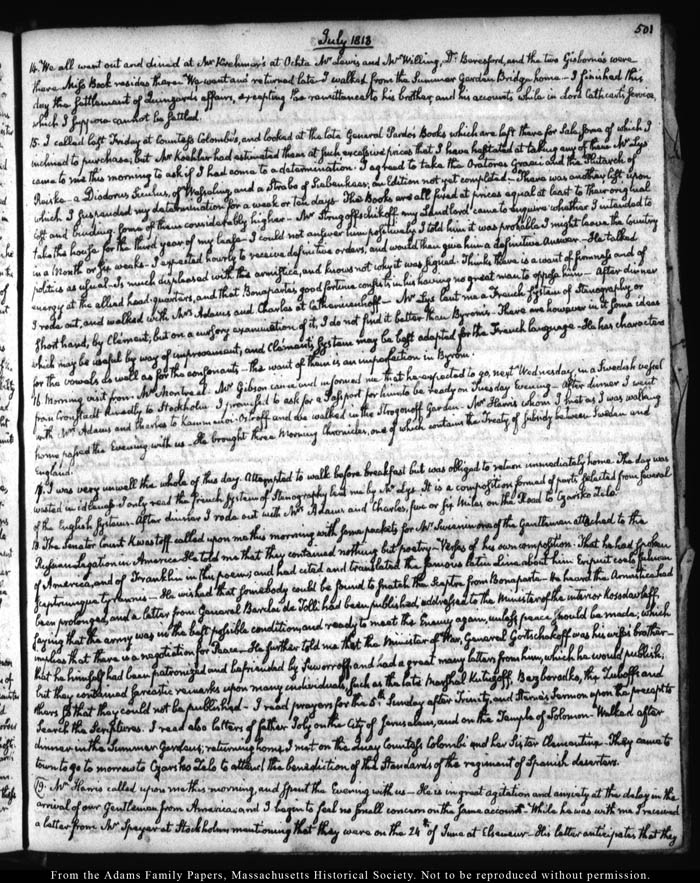 501
July 1813
14. We all went out and dined at Mr Krehmer's at Ochta Mr Lewis and Mr Willing, Dr Beresford, and the two Gisborne's were
there Miss Bock resides there. We went and returned late. I walked from the Summer Garden Bridge home — I finished this
day the Settlement of affairs, excepting the remittances to his brother, and his accounts while in Lord Cathcart's service
which I suppose cannot be settled.
15. I called last Friday at Countess Colombi's, and looked at the late General Pardo's Books which are left there for Sale, some of which I
inclined to purchase; but Mr Köhler had estimated them at such excessive prices that I have hesitated at taking any of them. Mr Lys
came to me this morning to ask if I had come to a determination. I agreed to take the Oratores Graeci and the Plutarch of
Reiske — a Diodorus Siculus, of Wesseling, and a Strabo of Siebenkees; an Edition not yet completed. There was another left upon
which I suspended my determination for a week or ten days. The Books are all fixed at prices equal at least to their original
cost and binding. Some of them considerably higher — Mr Strogofschikoff my Landlord came to enquire whether I intended to
take the house for the third year of my lease. I could not answer him positively. I told him it was probable I might leave the Country
in a Month or Six weeks. I expected hourly to receive definitive orders, and would then give him a definitive Answer — He talked
politics as usual. Is much displeased with this armistice, and knows not why it was signed. Thinks there is a want of firmness and of
energy at the allied head-quarters, and that Bonaparte's good fortune consists in his having no great man to oppose him — After dinner
I rode out, and walked with Mrs Adams and Charles at Catherinenhoff — Mr Lys lent me a French System of Stenography, or
Short hand, by Clément, but on a cursory examination of it, I do not find it better than Byrom's. There are however in it some ideas
which may be useful by way of improvement, and Clément's System may be best adapted for the French language. He has characters
for the vowels as well as for the consonants — the want of them is an imperfection in Byrom.
16. Morning visit from Mr Montreal. Mr Gibson came and informed me that he expected to go, next Wednesday in a Swedish vessel
from Cronstadt directly to Stockholm. I promised to ask for a Passport for him to be ready on Tuesday Evening — After dinner I went
with Mrs Adams and Charles to Kammenoi-Ostroff and we walked in the Strogonoff Garden. Mr Harris whom I met as I was walking
home passed the Evening with us. He brought three Morning Chronicles, one of which contains the Treaty of Subsidy between Sweden and
England.
17. I was very unwell the whole of this day. Attempted to walk before breakfast but was obliged to return immediately home. The day was
wasted in idleness. I only read the French System of Stenography lent me by Mr Lys. It is a composition formed of parts selected from several
of the English Systems. After dinner I rode out with Mrs Adams and Charles, five or six Miles on the Road to Czarsko Zelo.
18. The Senator Count Kwostoff called upon me this morning with some packets for Mr Swenin one of the Gentlemen attached to the
Russian Legation in America. He told me that they contained nothing but poetry — Verses of his own composition. That he had spoken
of America, and of Franklin in the poems and had cited and translated the famous latin line about him Eripuit coelo fulmen
Sceptrumque tyrannis — He wished that somebody could be found to snatch the Scepter from Bonaparte — He heard the Armistice had
been prolonged, and a letter from General Barclai de Tolli had been published, addressed to the Minister of the interior Kosodawleff
saying that the army was in the best possible condition, and ready to meet the Enemy again, unless peace should be made; which
implies that there is a negotiation for Peace. He further told me that the Minister of War, General Gortschakoff was his wife's brother —
that he himself had been patronized and befriended by Suworroff, and had a great many letters from him, which he would publish,
but they contained sarcastic remarks upon many individuals, such as the late Marshal Kutuzoff, Bezborodko, the Zuboffs and
others so that they could not be published — I read prayers for the 5th Sunday after Trinity, and Sterne's Sermon upon the precept to
Search the Scriptures. I read also letters of father Joly on the City of Jerusalem, and on the Temple of Solomon. Walked after
dinner in the Summer Gardens; returning home, I met on the Quay Countess Colombi and her Sister Clementine. They came to
town to go to morrow to Czarsko Zelo to attend the benediction of the Standards of the regiment of Spanish deserters.
19. Mr Harris called upon me this morning, and spent the Evening with us — He is in great agitation and anxiety at the delay in the
arrival of our Gentlemen from America and I begin to feel no small concern on the same account. While he was with me I received
a letter from Mr Speyer at Stockholm mentioning that they were on the 24th of June at Elseneur — His letter anticipates that they
From the Adams Family Papers, Massachusetts Historical Society. Not to be reproduced without permission.